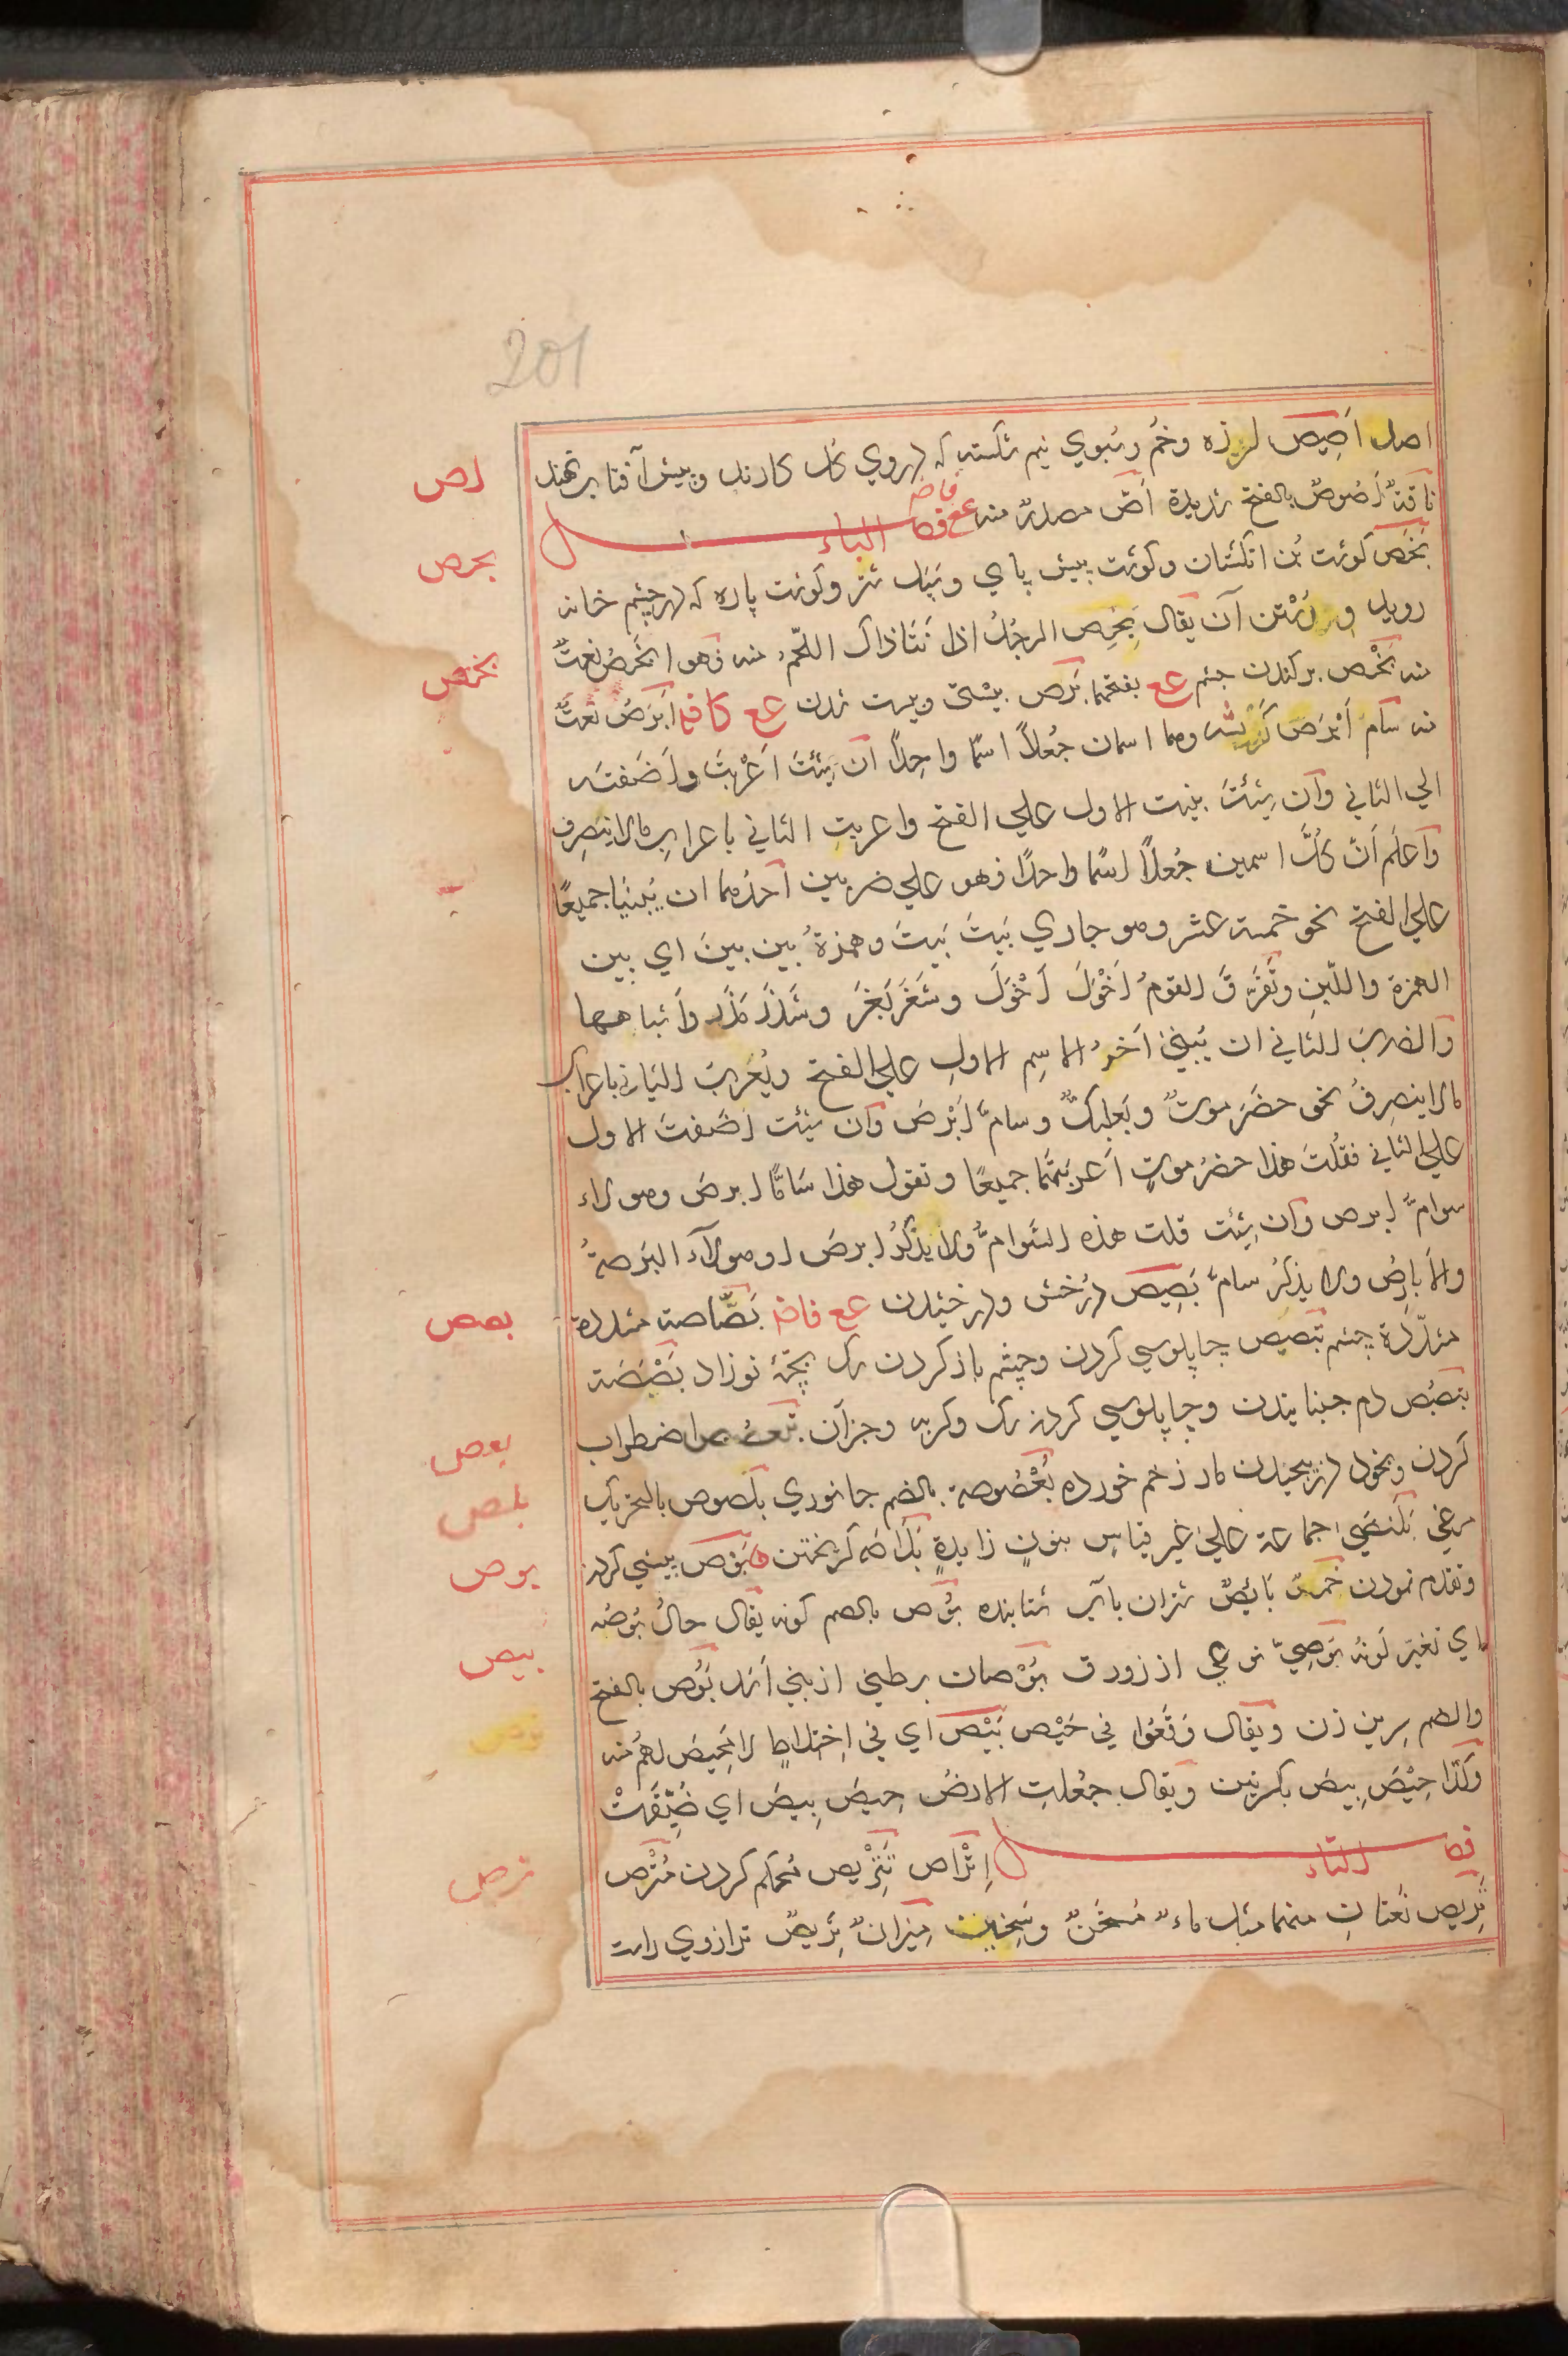 201
اصل اَصِيص لرزه وخُم وسُبوي نيم شكسته كه دروي كل كارند وپيش آفتاب نهند
اص
ناقَةٌ اَصُوصٌ بالفتح شديدة اَصّ مصدرٌ منه عع فاضه
فصل الباء
بخص
بَخَص كوشت بُن انكشتان وكوشت پيش پاي وسَپَل شتر وكوشت پاره كه در چشم خانه
رويد و آن يقال بَخِص الرجُلُ اذا نَتَا ذاك اللّحمُ منه فهو ابخَصُ نعتٌ
بخص
منه بَخْص بركندن چشم عع بفتحهما بَرَص پيستى وپيست شدن عع كاف اَبرَصُ نعتٌ
منه سَامّ اَبْرَصَ وهما اسمان جُعِلاَ اسمًا واحِدًا ان شِئتَ اَعْرَبتَ واَضَفتَه
الي الثاني وَان شِئتَ بنيت الاول علي الفتح واعربتَ الثاني باعراب مالاينصرف
وَاعلَم اَنّ كُلَّ اسمين جُعِلاَ اسمًا واحدًا فهو علي ضربين اَحدُهما ان يُبنَيا جميعًا
علي الفتح نحو خمسة عشر وهو جاري بَيتَ بَيتَ وهمزةُ بين بينَ اي بين
الهمزة واللّين وتَفَرَّقَ القومُ اَخْوَلَ اَخْوَلَ وشَغَرَ بَغَرَ وشَذَرَ مَذَر وَاَشباهها
وَالضرب الثاني ان يُبنيَ اَخرُ الاسِم الاولِ علي الفتح ويُعربَ الثاني باعراب
مالاينصِرفُ نحو حضَرَموتُ وبَعلبَكُّ وسامَّ اَبْرصَ وَان شِئت اَضَفتَ الاول
علي الثاني فقُلتَ هذا حضرُموتٍ اَعربتَهُما جميعًا وتقول هذا سَامُّ ابرصَ وهولاء
سوامُّ ابرص وَان شِئت قلت هذه السَّوامُّ ولا يذكَرُ ابرصَ او هولاَء البَرَصةُ
والاَبارِصُ ولا يذكرُ سامُّ بَصِيص دُرُخش ودرخشيدن عع فاضه بَصَّاصة مشددة
بصص
مشدّدة چشم تَبصيص چاپلوسي كردن وچشم باز كردن سك بچّهٔ نوزاد بَصْبَصَة
تبصبُص دم جنبانيدن وچاپلوسي كردن سك وكربه وجزآن تَبعصُص اضطراب
بعص
كردن وبخود درپيچيدن مار زخم خورده بُعْصُوصة بالضم جانوري بلَصوص بالتحريك
بلص
مرغي بَلَنصَي جماعة عليٰ غير قياسٍ بنونٍ زايدةٍ بَلاَصَة كريختن بَوص پيشي كردن
بوص
وتقدم نمودن خمسٌ بَائِصٌ شتران بآب شتابنده بُوص بالضم كونه يقال حالَ بُوصُه
اي تغيرَ لَونُهُ بُوصِيّ نوعي از زورق بُوْصان برطني از بني اَسَد بَوُص بالفتح
بيص
والضم سِرين زن ويقال وَقَعُوا في حَيْص بَيْص اي في اِختِلاطٍ لامَحِيصَ لهُم منه
وكَذا حِيْصَ بيصَ بكسرتين ويقال جعُلتِ الارضُ حِيصَ بِيصَ اي ضُيِّقَتْ
فصل التاء
اِتْرَاص تَتْرِيص محكم كردن مُتْرَص
ترص
تَرِيص نَعتانِ منهما مثل ماءٌ مُسْخَنٌ وسَخِينٌ مِيزانٌ تَرِيصٌ ترازوي راست